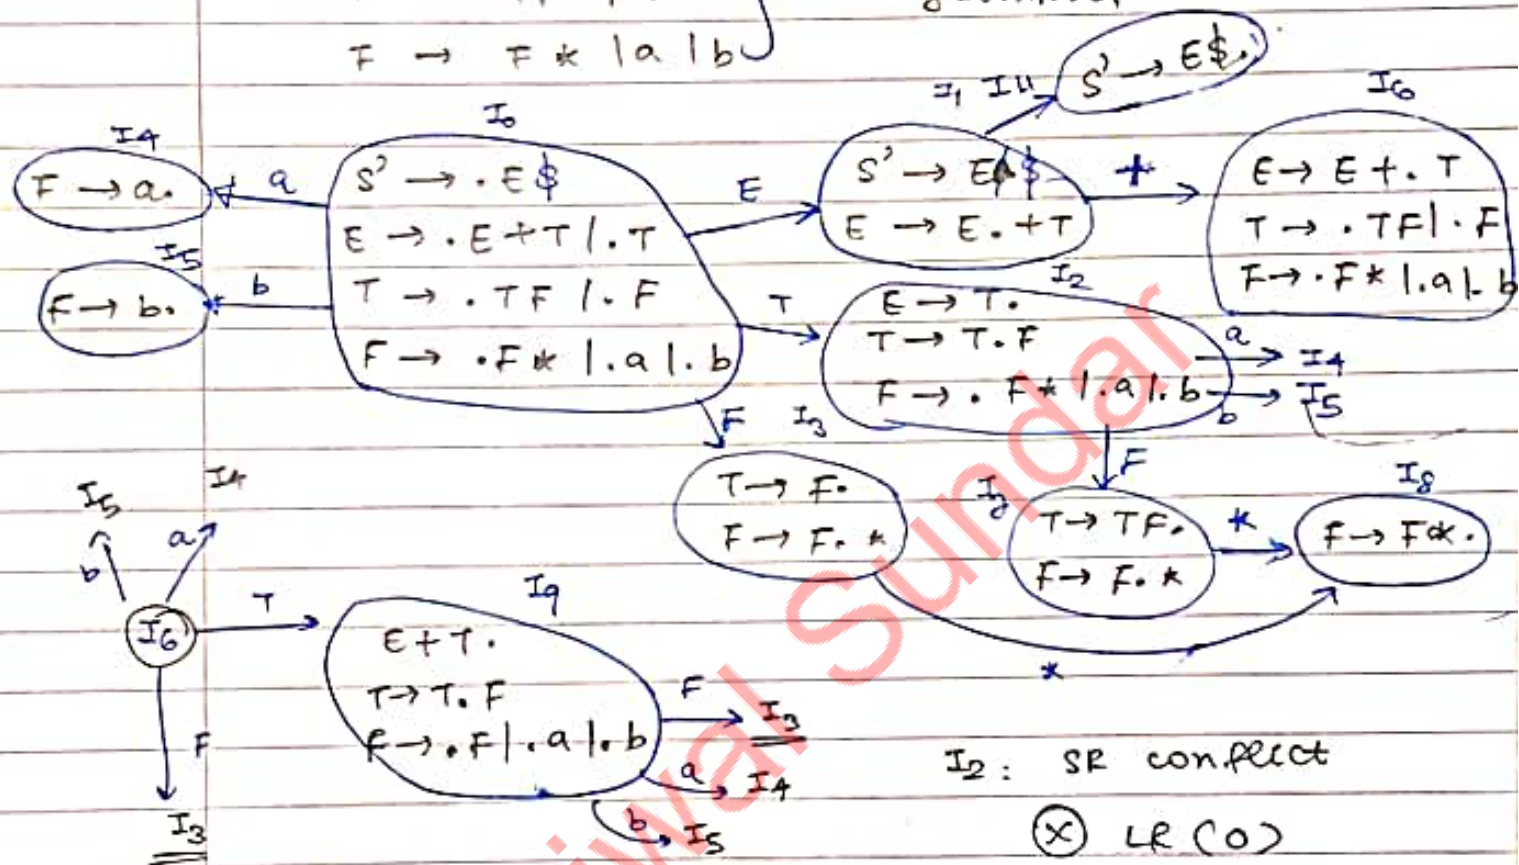 F → F * | a | b
I0
I4
F → a.
a
I5
F → b.
b
S' → .E$
E → .E+T | .T
T → .TF | .F
F → .F* | .a | .b
E
I1
S' → E.$
E → E.+T
I11
S' → E$.
+
I6
E → E+.T
T → .TF | .F
F → .F* | .a | .b
T
I2
E → T.
T → T.F
F → .F* | .a | .b
a
I4
b
I5
F
I3
T → F.
F → F.*
F
I7
T → TF.
F → F.*
*
I8
F → F*.
*
I5
b
I4
a
I6
T
F
I3
I9
E+T.
T → T.F
F → .F | .a | .b
F
I3
a
I4
b
I5
I2: SR conflict
ⓧ LR(0)
iwal Sundar